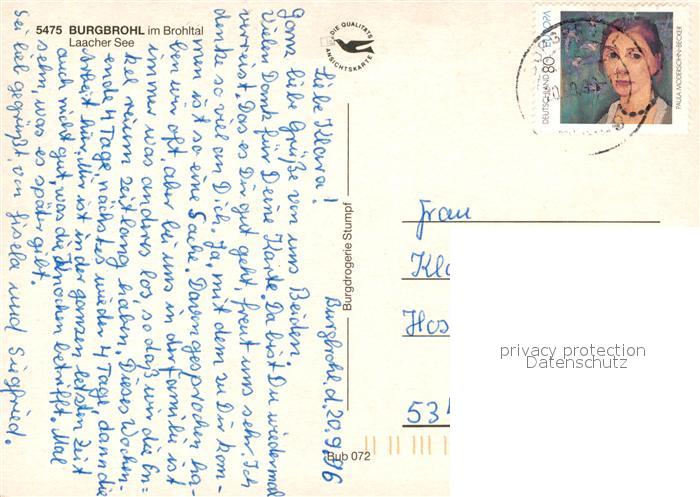 5475 BURGBROHL im Brohltal
Laacher See
DIE QUALITÄTS
ANSICHTSKARTE
DEUTSCHLAND 80 EUROPA
PAULA MODERSOHN-BECKER
Burgbrohl, d. 20.9.96
Liebe Klara!
Ganz liebe Grüße von uns Beiden.
Vielen Dank für Deine Karte. Da bist Du wiedermal
verreist. Das es Dir gut geht, freut uns sehr. Ich
denke so viel an Dich. Ja, mit dem zu Dir kom-
men ist so eine Sache. Davon gesprochen ha-
ben wir oft, aber bei uns in der Familie ist
immer was anderes los, so daß wir die En-
kel neum zeitlang haben. Dieses Wochen-
ende 4 Tage, nächstes wieder 4 Tage, dann die
hier. Mir ist in der ganzen letzten Zeit
auch nicht gut, was die Knochen betrifft. Mal
sehn, was es später gibt.
Sei lieb gegrüßt von Gisela und Siegfried.
Burgdrogerie Stumpf
Bub 072
Frau
Kla
Hos
53
privacy protection
Datenschutz